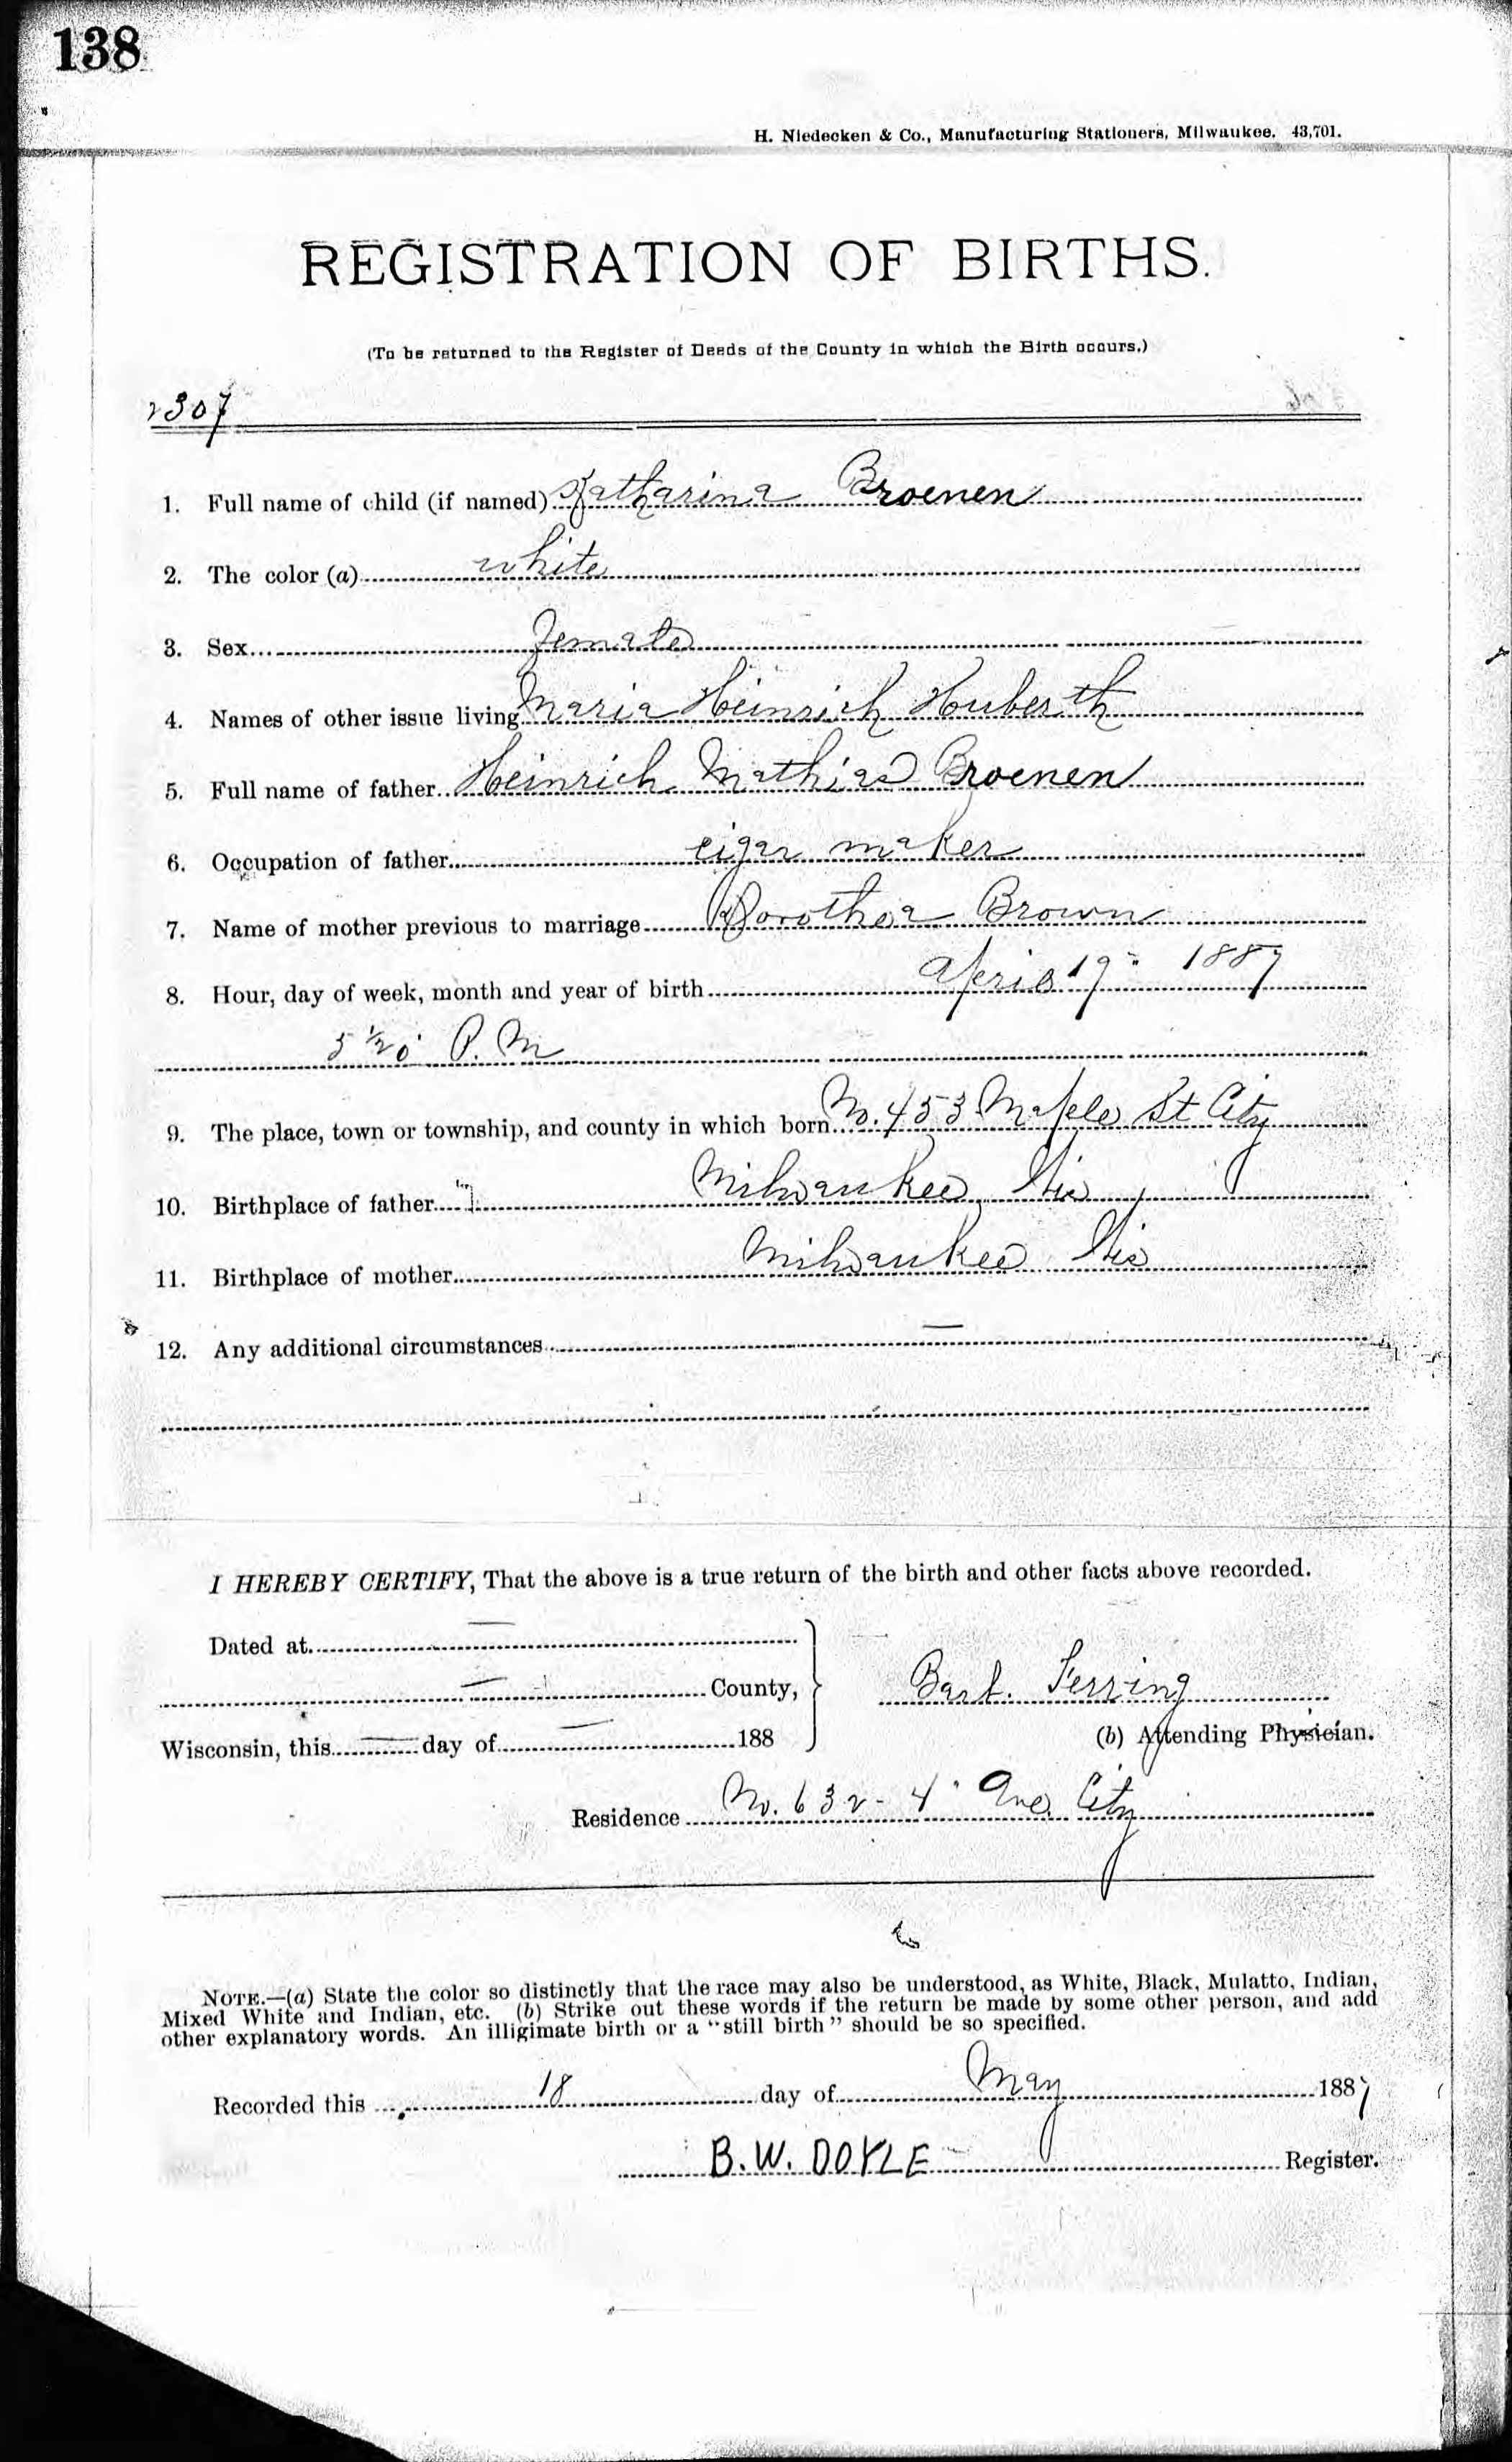 138
H. Niedecken & Co., Manufacturing Stationers, Milwaukee. 43,701.
REGISTRATION OF BIRTHS.
(To be returned to the Register of Deeds of the County in which the Birth occurs.)
2307
1. Full name of child (if named) Katharina Broenen
2. The color (a) white
3. Sex Female
4. Names of other issue living Maria Heinrich Huberth
5. Full name of father Heinrich Mathias Broenen
6. Occupation of father cigar maker
7. Name of mother previous to marriage Dorothea Brown
8. Hour, day of week, month and year of birth April 19 1887
5 P. M
9. The place, town or township, and county in which born No. 453 Maple St City
10. Birthplace of father Milwaukee Wis
11. Birthplace of mother Milwaukee Wis
12. Any additional circumstances —
I HEREBY CERTIFY, That the above is a true return of the birth and other facts above recorded.
Dated at —
— County,
Wisconsin, this — day of — 188
Barb. Ferring
(b) Attending Physician.
Residence No. 632 - 4 Ave City
NOTE.—(a) State the color so distinctly that the race may also be understood, as White, Black, Mulatto, Indian,
Mixed White and Indian, etc. (b) Strike out these words if the return be made by some other person, and add
other explanatory words. An illigimate birth or a "still birth" should be so specified.
Recorded this 18 day of May 1887
B.W. DOYLE Register.